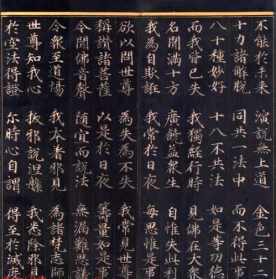 不能於未來 演說無上道 金色三十二
十力諸解脫 同共一法中 而不得此事
八十種妙好 十八不共法 如是等功德
而我皆已失 我獨經行時 見佛在大眾
名聞滿十方 廣饒益眾生 自惟失此利
我為自欺誑 我常於日夜 每思惟是事
欲以問世尊 為失為不失 我常見世尊
稱讚諸菩薩 以是於日夜 籌量如是事
今聞佛音聲 隨宜而說法 無漏難思議
令眾至道場 我本著邪見 為諸梵志師
世尊知我心 拔邪說涅槃 我悉除邪見
於空法得證 尔時心自謂 得至於滅度